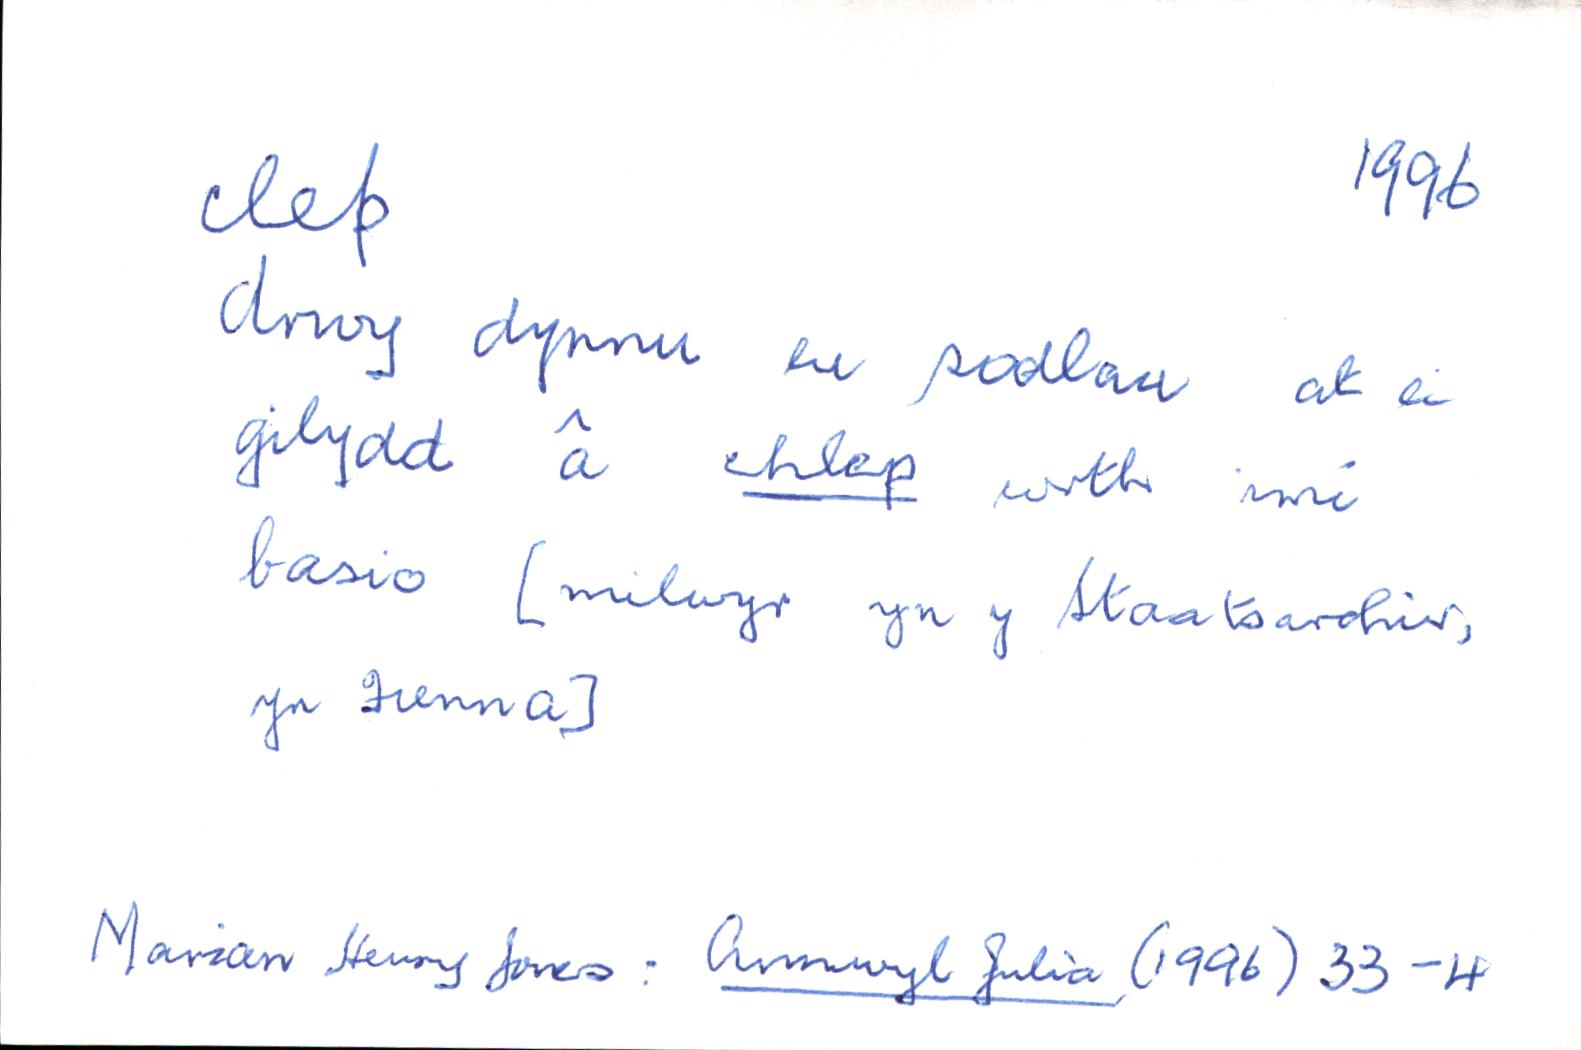 clep 1996
drwy dynnu eu sodlau at ei
gilydd â chlep wrth imi
basio [milwyr yn y Staatsarchiv,
yn Fienna]
Marian Henry Jones: Annwyl Julia (1996) 33-4